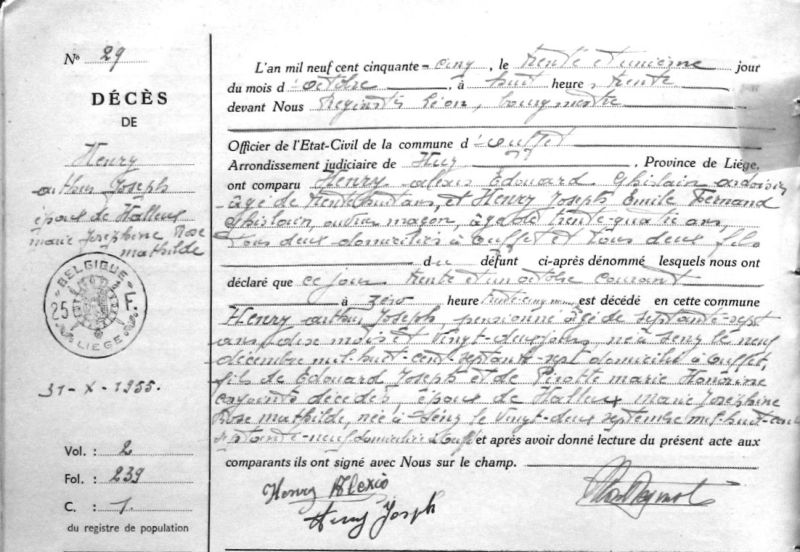 N° 29
DÉCÈS
DE
Henry
arthur Joseph
époux de Halleux
marie Joséphine Rose
mathilde
BELGIQUE
25 F.
LIEGE
31-X-1955.
Vol. : 2
Fol. : 239
C. : 1.
du registre de population
L'an mil neuf cent cinquante-cinq, le trente et unième jour
du mois d'octobre, à huit heure, trente
devant Nous Léon, bourgmestre
Officier de l'Etat-Civil de la commune d'ouffet
Arrondissement judiciaire de Huy, Province de Liége,
ont comparu Henry alexis Edouard Ghislain ardoisier
âgé de trente huit ans, et Henry Joseph Emile Fernand
Ghislain, ouvrier maçon, âgé de trente-quatre ans,
tous deux domiciliés à ouffet et tous deux fils
du défunt ci-après dénommé lesquels nous ont
déclaré que ce jour trente et un octobre courant
à zéro heure trente cinq est décédé en cette commune
Henry arthur Joseph, pensionné âgé de septante-sept
ans, dix mois et vingt-deux jours, né à Seny le neuf
décembre mil huit cent septante-sept domicilié à ouffet,
fils de Edouard Joseph et de Pirotte marie Honorine
conjoints décédés, époux de Halleux marie Joséphine
Rose mathilde, née à Seny le vingt-deux septembre mil huit cent
septante-neuf domiciliée à ouffet et après avoir donné lecture du présent acte aux
comparants ils ont signé avec Nous sur le champ.
Henry Alexis
Henry Joseph